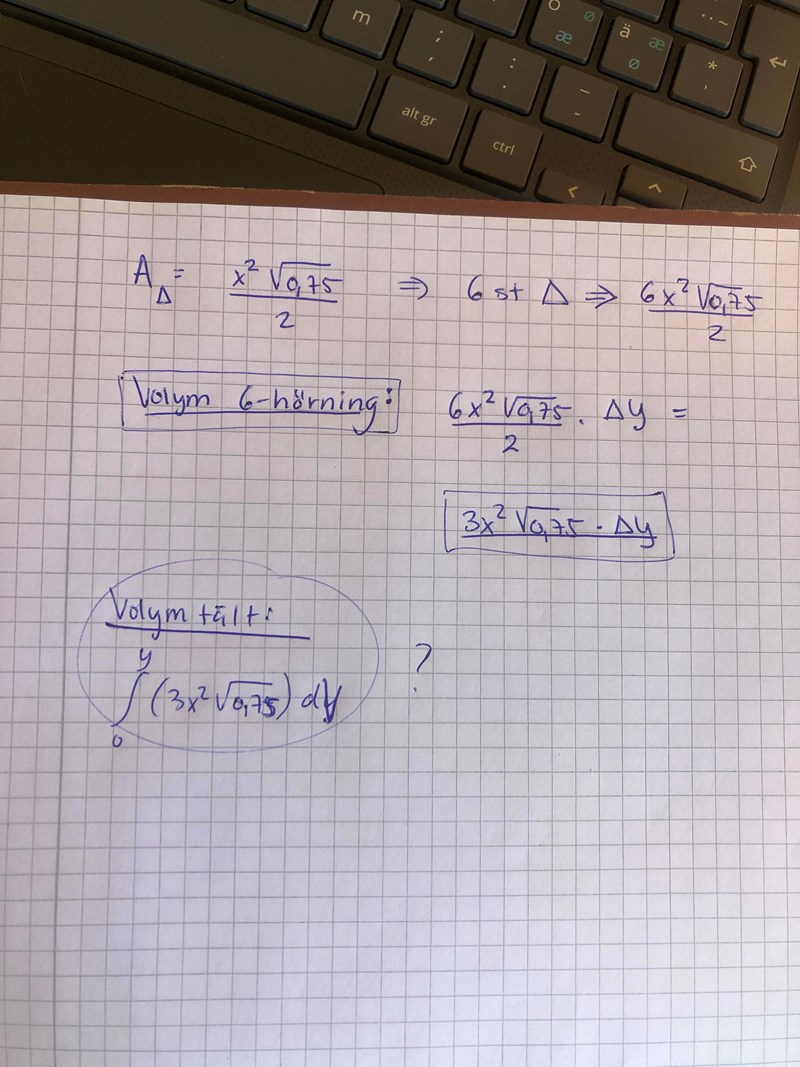 m ; , : . Ö Ø Æ Ä Æ Ø * '
alt gr ctrl - _ < ^
A_Δ = x² √0,75 / 2 ⇒ 6 st Δ ⇒ 6x² √0,75 / 2
Volym 6-hörning: 6x² √0,75 / 2 · Δy =
3x² √0,75 · Δy
Volym tält:
∫₀^y (3x² √0,75) dy ?